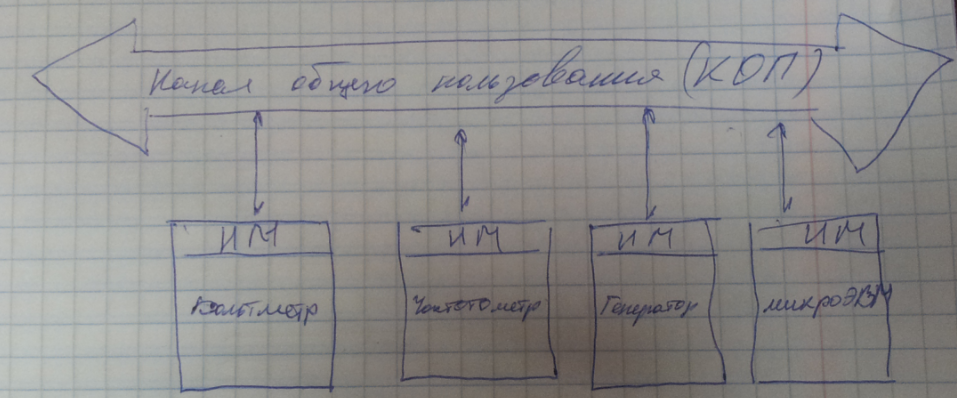 Канал общего пользования (КОП)
ИМ ИМ ИМ ИМ
Вольтметр Частотометр Генератор микроЭВМ